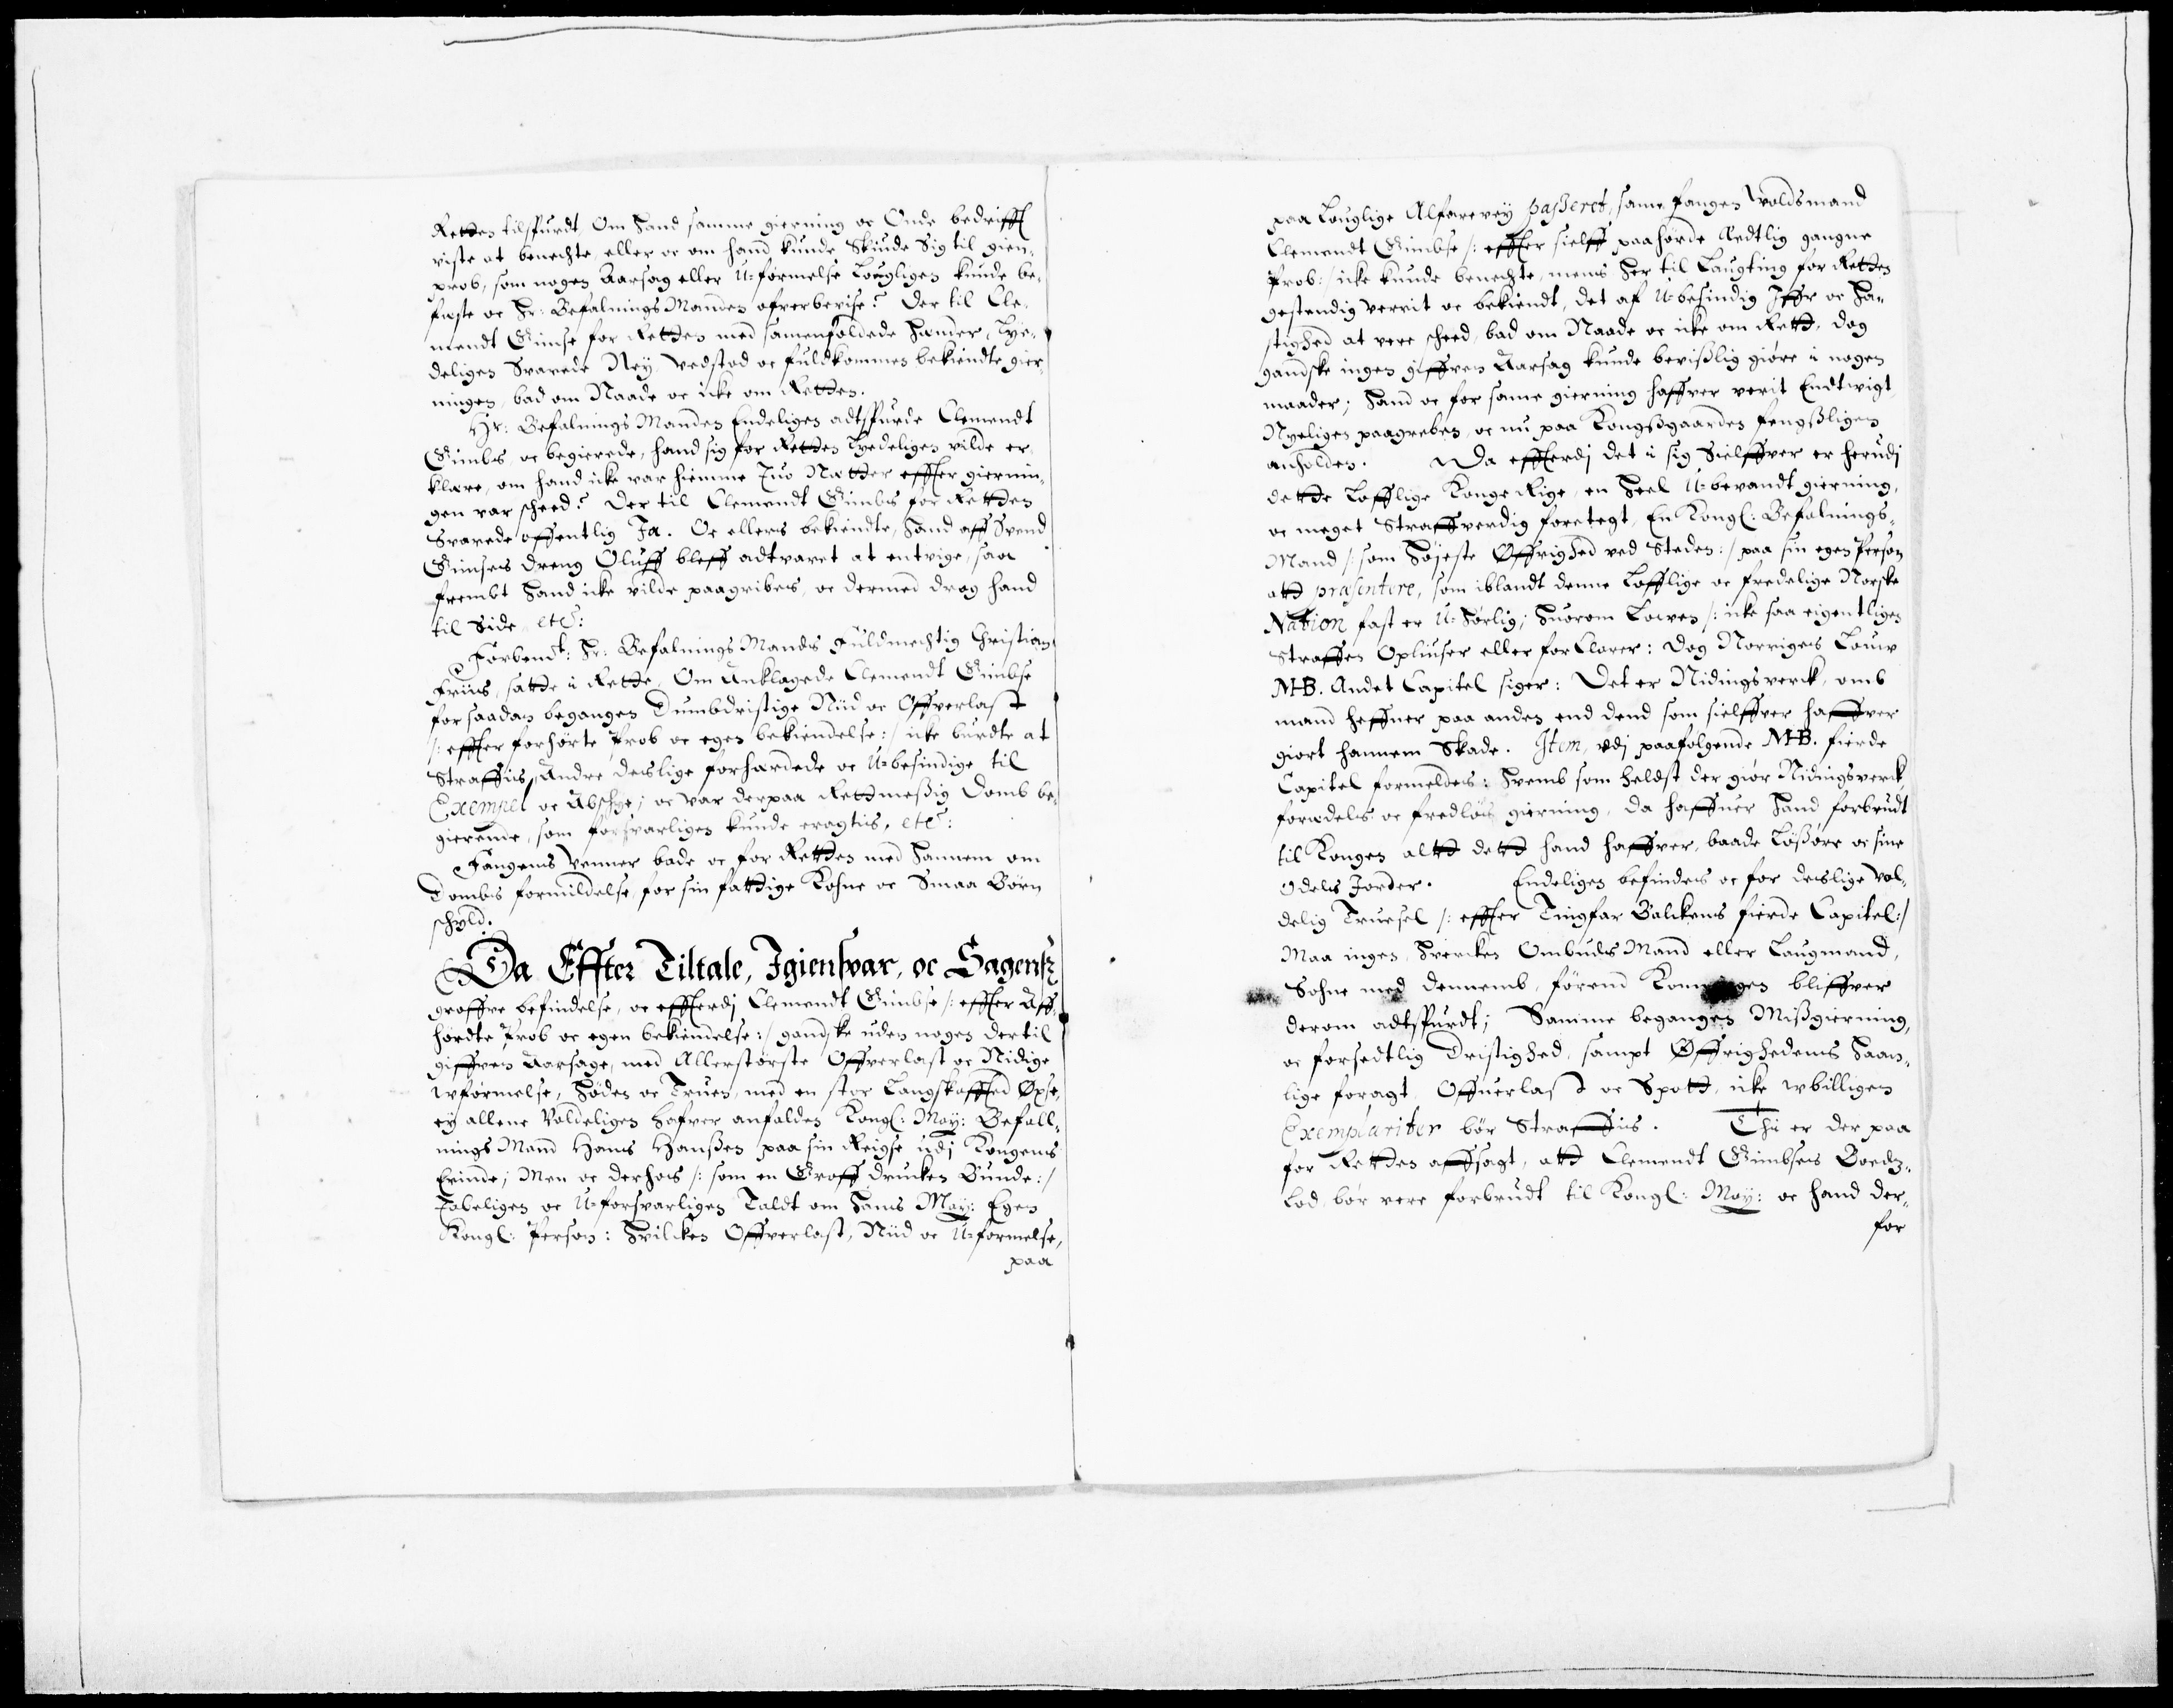 Retten tilspurdt, Om Hand samme gierning oc Onde bedrifft
viste at benechte, eller oc om hand kunde Skiude Sig til gien-
prob, som nogen Aarsag eller U-formelse Lougligen kunde be-
feste oc Hr: Befalnings Manden ofverbevise? Der til Cle-
mendt Gimse for Retten med samenfoldede Hænder, Tye-
deligen Svarede Ney, vedstod oc fuldkommen bekiendte gier-
ningen, bad om Naade oc icke om Retten.
Hr: Befalnings Manden Endeligen adtspurde Clemendt
Gimbs, oc begierede, hand sig for Retten Tyedeligen vilde er-
klære, om hand icke var hiemme Tuo Netter effter giernin-
gen var scheed? Der til Clemendt Gimbs for Retten
Svarede offentlig Ja. Oc ellers bekiendte, Hand aff Svend
Gimses dreng Oluff bleff advaret at entvige, saa
fremt Hand icke vilde paagribes, oc dermed drog hand
til Side, etc:
Forbendt: Hr: Befalnings Mands Fuldmechtig Christian
Friis, satte i Rette, Om Anklagede Clemendt Gimbse
for saadan begangen Dumbdristige Niid oc Offverlast
/: effter forhørte Prob oc egen bekiendelse :/ icke burdte at
Straffis, Andre deslige forhærdede oc U-besindige til
Exempel oc Abschye; oc var derpaa Rettmeßig Domb be-
gierende, som forsvarligen kunde eragtis, etc:
Fangens Venner bade oc for Retten med Hannem om
Dombs formildelse, for sin fattige Kohne oc Smaa Børn
schyld.
Da Effter Tiltale, Igiensvar, oc Sagens
groffve befindelse, oc effterdj Clemendt Gimbse /: effter Aff-
hørdte Prob oc egen bekiendelse :/ gandske uden nogen dertil
giffven Aarsage, med Allerstørste Offverlast oc Nidige
Uformelse, Høden oc Truen, med en stor Langskaffted Øxse,
ey allene Voldeligen hafver anfalden Kongl: May: Befall-
nings Mand Hans Hanßen paa sin Reigse udj Kongens
Erinde; Men oc derhos /: som en Groff drucken Bunde :/
Tobeligen oc U-forsvarligen Taldt om Hans May: Egen
Kongl: Person: Hvilcken Offverlast, Niid oc U-formelse,
paa
paa Louglige Alfarevey passeret, same fangen Voldsmand
Clemendt Gimbse /: effter sielff paahørde Redtlig gangne
Prob :/ icke kunde benechte, mens Her til Laugting for Retten
gestendig verrit oc bekiendt, det af U-besindig Iffr oc Ha-
stighed at vere scheed, bad om Naade oc icke om Rett, dog
gandske ingen giffven Aarsag kunde bevißlig giøre i nogen
maader; Hand oc for same gierning haffver verit Endtvigt,
Nyeligen paagreben, oc nu paa Kongßgaarden fengßligen
anholden. Da effterdj det i sig Sielffver er herudj
dette Lofflige Konge Rige, en Heel U-bevandt gierning,
oc meget Straffverdig foretegt, En Kongl: Befalnings-
Mand /: som Højeste Øffrighed ved Steden :/ paa sin egen Person
att præsentere, som iblandt denne Lofflige oc fredelige Norske
Nation fast er U-Hørlig; Huorom Lowen /: icke saa eigentligen
Straffen Opliuser eller forClarer: Dog Norriges Louw
M-B. Andet Capitel siger: Det er Nidingsverck, omb
mand heffner paa anden end dend som sielffver haffver
giort hannem Skade. Item, udj paafolgende M-B. fierde
Capitel formeldes: Hvemb som heldst der giør Nidingsverck,
forædels oc fredløs gierning, da haffuer Hand forbrudt
til Kongen altt dett hand haffver, baade Løßøre oc sine
Odels Jorder. Endeligen befindes oc for deslige vol-
delig Truesel /: effter Tingfar Balckens fierde Capitel :/
Maa ingen, Hvercken Ombuds Mand eller Laugmand,
Sohne med dennemb, førend Konningen bliffver
derom adtspurdt; Samme begangen Mißgierning,
oc forsedtlig Dristighed, sampt Øffrighedens Haan-
lige foragt, Offuerlast oc Spott, icke Ubilligen
Exemplariter bør Straffis. Thi er der paa
for Retten affsagt, att Clemendt Gimbses Boedtz-
Lod, bør vere forbrudt til Kongl: May: oc hand der-
for